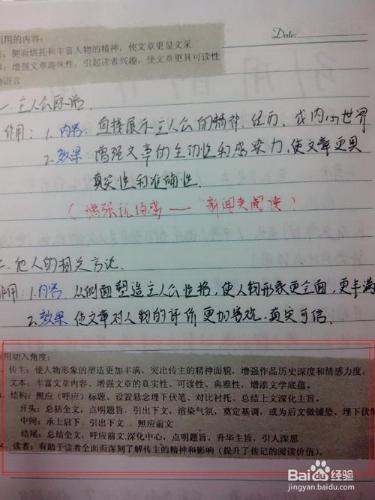 引用的内容:
侧面烘托和丰富人物的精神,使文章更显文采
增强文章趣味性,引起读者兴趣,使文章更具可读性
Date:
一.主人公原话
作用:1.内容:直接展示主人公的精神、经历、或内心世界
2.效果:增强文章的生动性和感染力,使文章更具
真实性和准确性.
(增强说服力 —— 新闻类阅读)
二.他人的相关言论
作用:1.内容 从侧面塑造主人公性格,使人物形象更全面,更丰满
2.效果 使文章对人物的评价更加客观,真实可信.
引用切入角度:
传主:使人物形象的塑造更加丰满,突出传主的精神面貌,增强作品历史深度和情感力度。
文本:丰富文章内容,增强文章的真实性、可读性、典雅性,增添文学底蕴。
结构:照应(呼应)标题、设置悬念埋下伏笔、对比衬托、总结上文深化主旨。
开头:总括全文,点明题旨、引出下文、渲染气氛,奠定基调,或为后文做铺垫、埋下伏笔
中间:承上启下、引出下文、照应前文
结尾:总结全文,呼应前文,深化中心,点明题旨、升华主旨,引人深思
读者:有助于读者全面而深刻了解传主的精神和影响(提升了传记的阅读价值)。
Baidu经验
jingyan.baidu.com